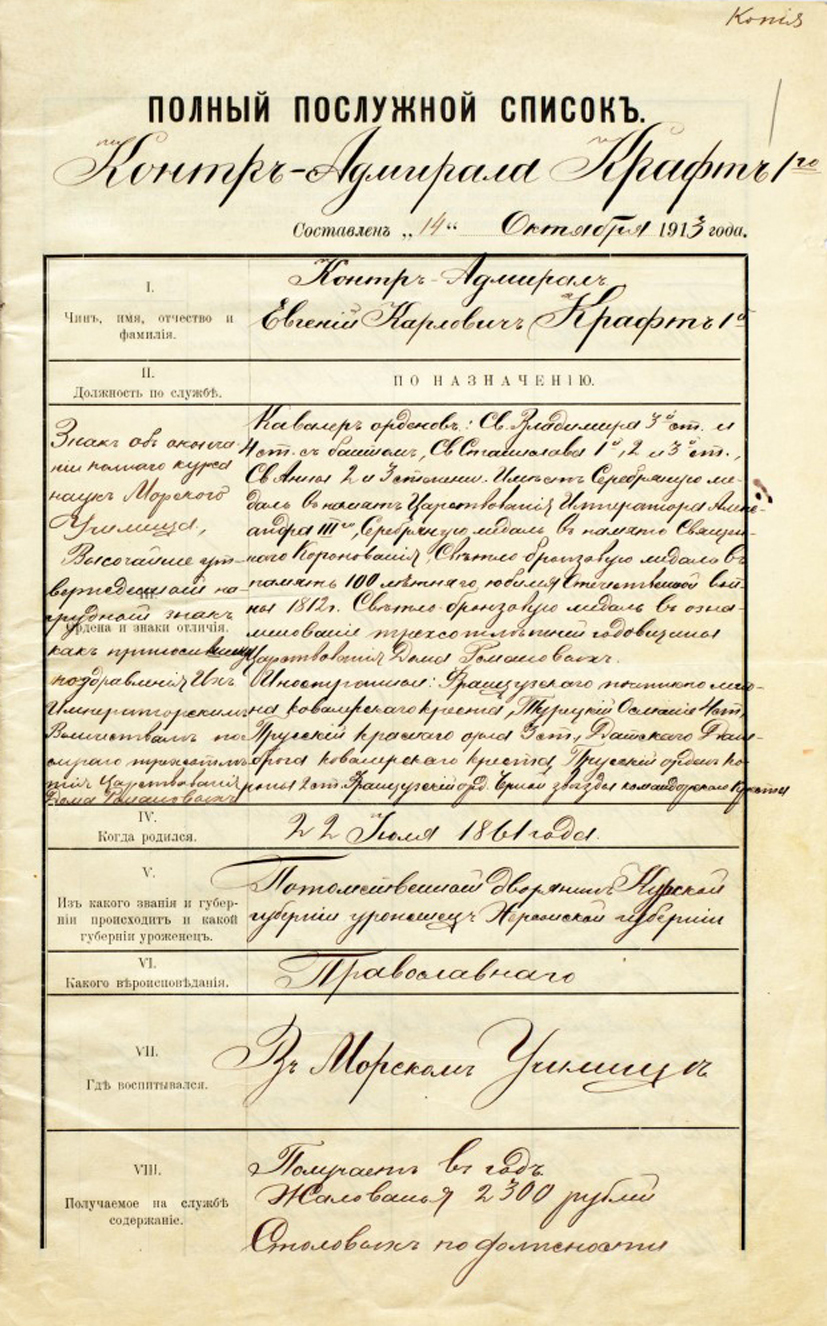 Копія
ПОЛНЫЙ ПОСЛУЖНОЙ СПИСОКЪ.
Контръ-Адмирала Крафтъ 1го
Составленъ „14“ Октября 1913 года.
I.
Чинъ, имя, отчество и
фамилія.
Контръ-Адмиралъ
Евгеній Карловичъ Крафтъ 1й
II.
Должность по службѣ.
ПО НАЗНАЧЕНІЮ.
Знакъ объ оконча
ніи полнаго курса
наукъ Морского
Училища,
Высочайше ут-
вержденный на-
грудной знакъ
Ордена и знаки отличія.
какъ приносившему
поздравленія Ихъ
Императорскимъ
Величествамъ по
случаю трехсотлѣ
тія Царствованія
Дома Романовыхъ
Кавалеръ орденовъ: Св. Владимира 3й ст. и
4 ст. съ бантомъ, Св Станислава 1й, 2 и 3й ст.,
Св Анны 2 и 3 степени. Имѣетъ Серебряную ме-
даль въ память Царствованія Императора Алек-
сандра IIIго, Серебряную медаль въ память Священ-
наго Коронованія, Свѣтло бронзовую медаль въ
память 100 лѣтняго юбилея Отечественной вой-
ны 1812 г. Свѣтло-бронзовую медаль въ озна-
менованіе трехсотлѣтней годовщины
Царствованія Дома Романовыхъ.
Иностранные: Французскаго почетнаго легіо-
на кавалерскаго креста, Турецкій Османіе 4 ст,
Прусскій краснаго орла 3 ст, Датскаго Дане-
брога кавалерскаго креста, Прусскій орденъ Ко-
роны 2 ст. Французскій орд. Черной звѣзды командорскаго креста
IV.
Когда родился.
22 Іюля 1861 года.
V.
Изъ какого званія и губер-
ніи происходитъ и какой
губерніи уроженецъ.
Потомственный дворянинъ Курской
губерніи уроженецъ Херсонской губерніи
VI.
Какого вѣроисповѣданія.
Православнаго
VII.
Гдѣ воспитывался.
Въ Морскомъ Училищѣ
VIII.
Получаемое на службѣ
содержаніе.
Получаетъ въ годъ
Жалованья 2300 рублей
Столовыхъ по должности